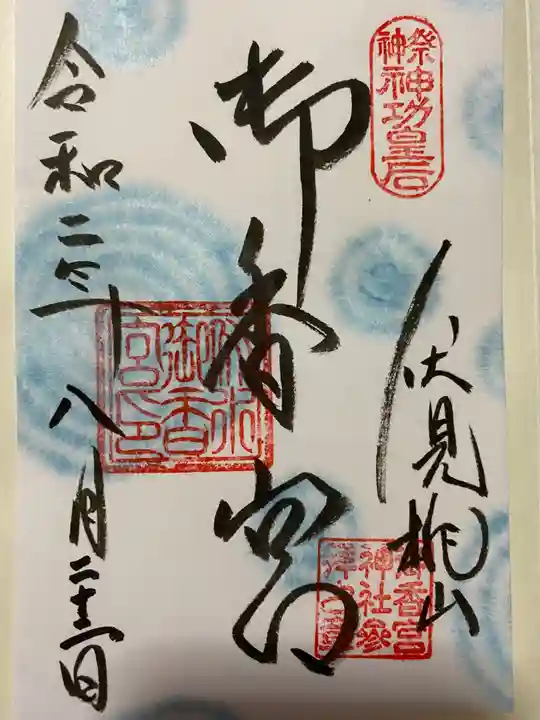 祭神
神功皇后
伏見桃山
御香宮神社参拝之章
御香宮
伏水御香宮印
令和二年八月二十二日